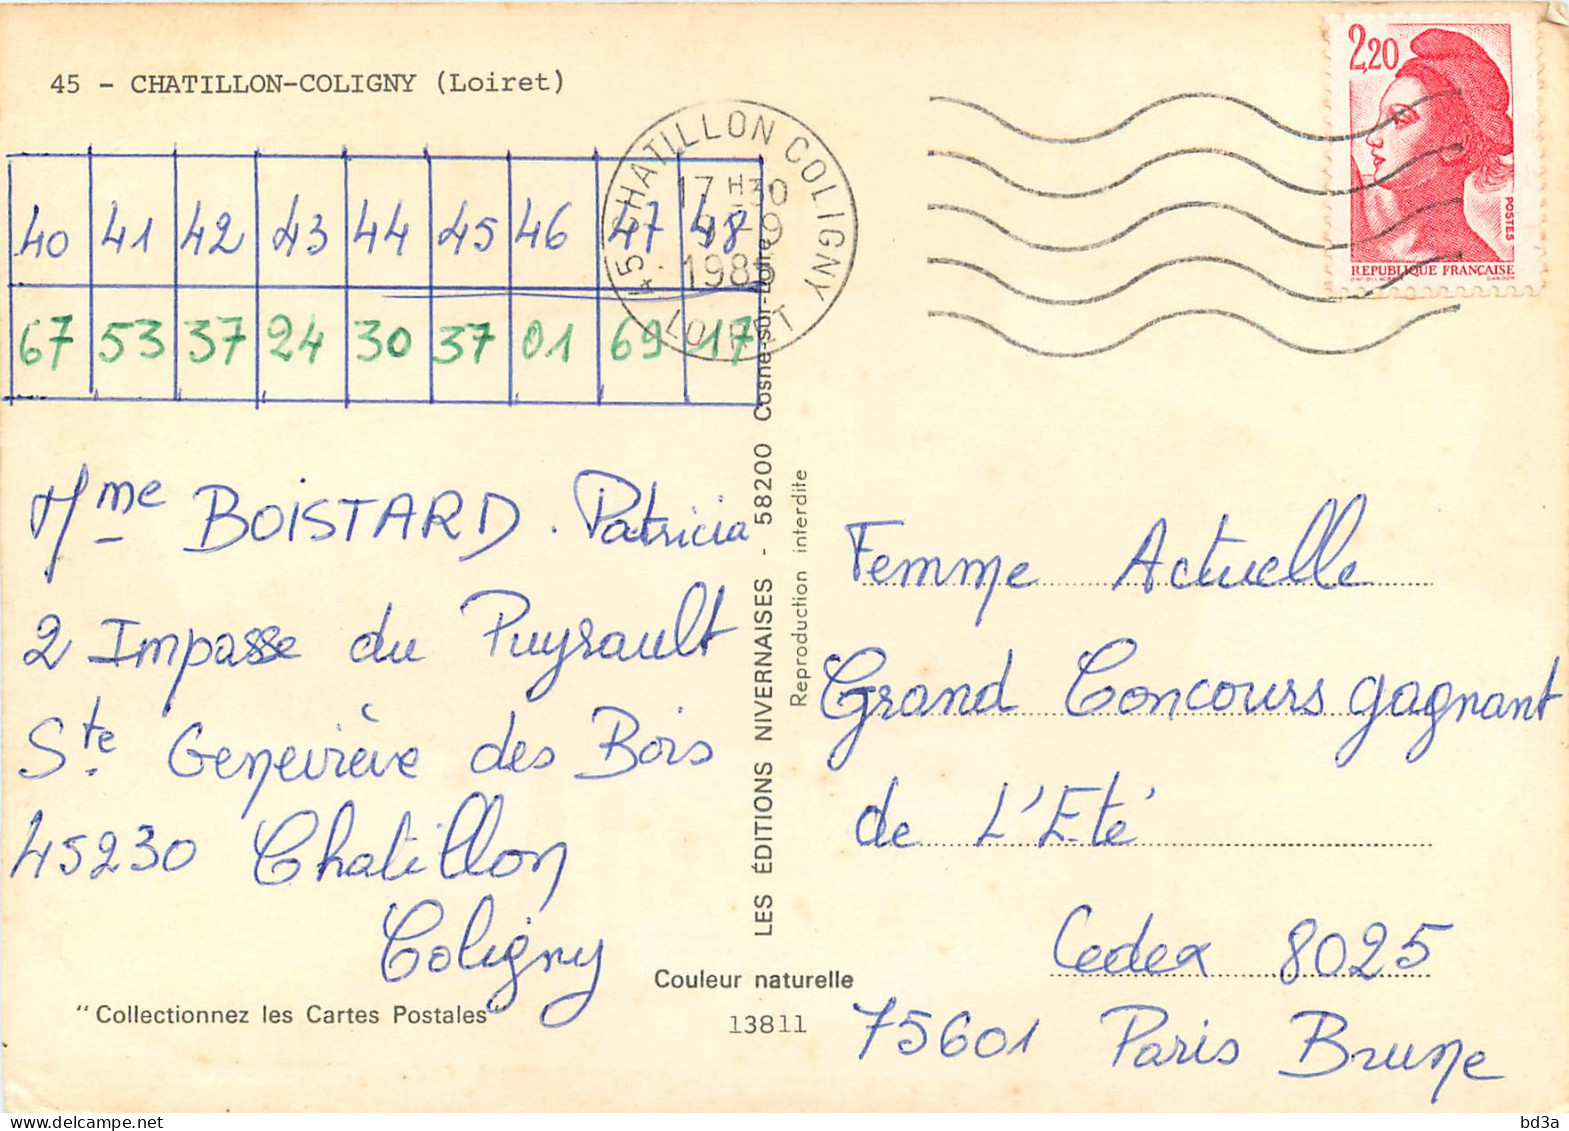 45 - CHATILLON-COLIGNY (Loiret)
40 41 42 43 44 45 46 47 48
67 53 37 24 30 37 01 69 17
45 CHATILLON COLIGNY
17 H30
9 - 9
LOIRET
2,20
POSTES
REPUBLIQUE FRANÇAISE
Mme BOISTARD. Patricia
2 Impasse du Puyrault
Ste Geneviève des Bois
45230 Chatillon
Coligny
"Collectionnez les Cartes Postales"
LES ÉDITIONS NIVERNAISES - 58200 Cosne-sur-Loire
Reproduction interdite
Couleur naturelle
13811
Femme Actuelle
Grand Concours gagnant
de L'Eté
Cedex 8025
75601 Paris Brune
bd3a